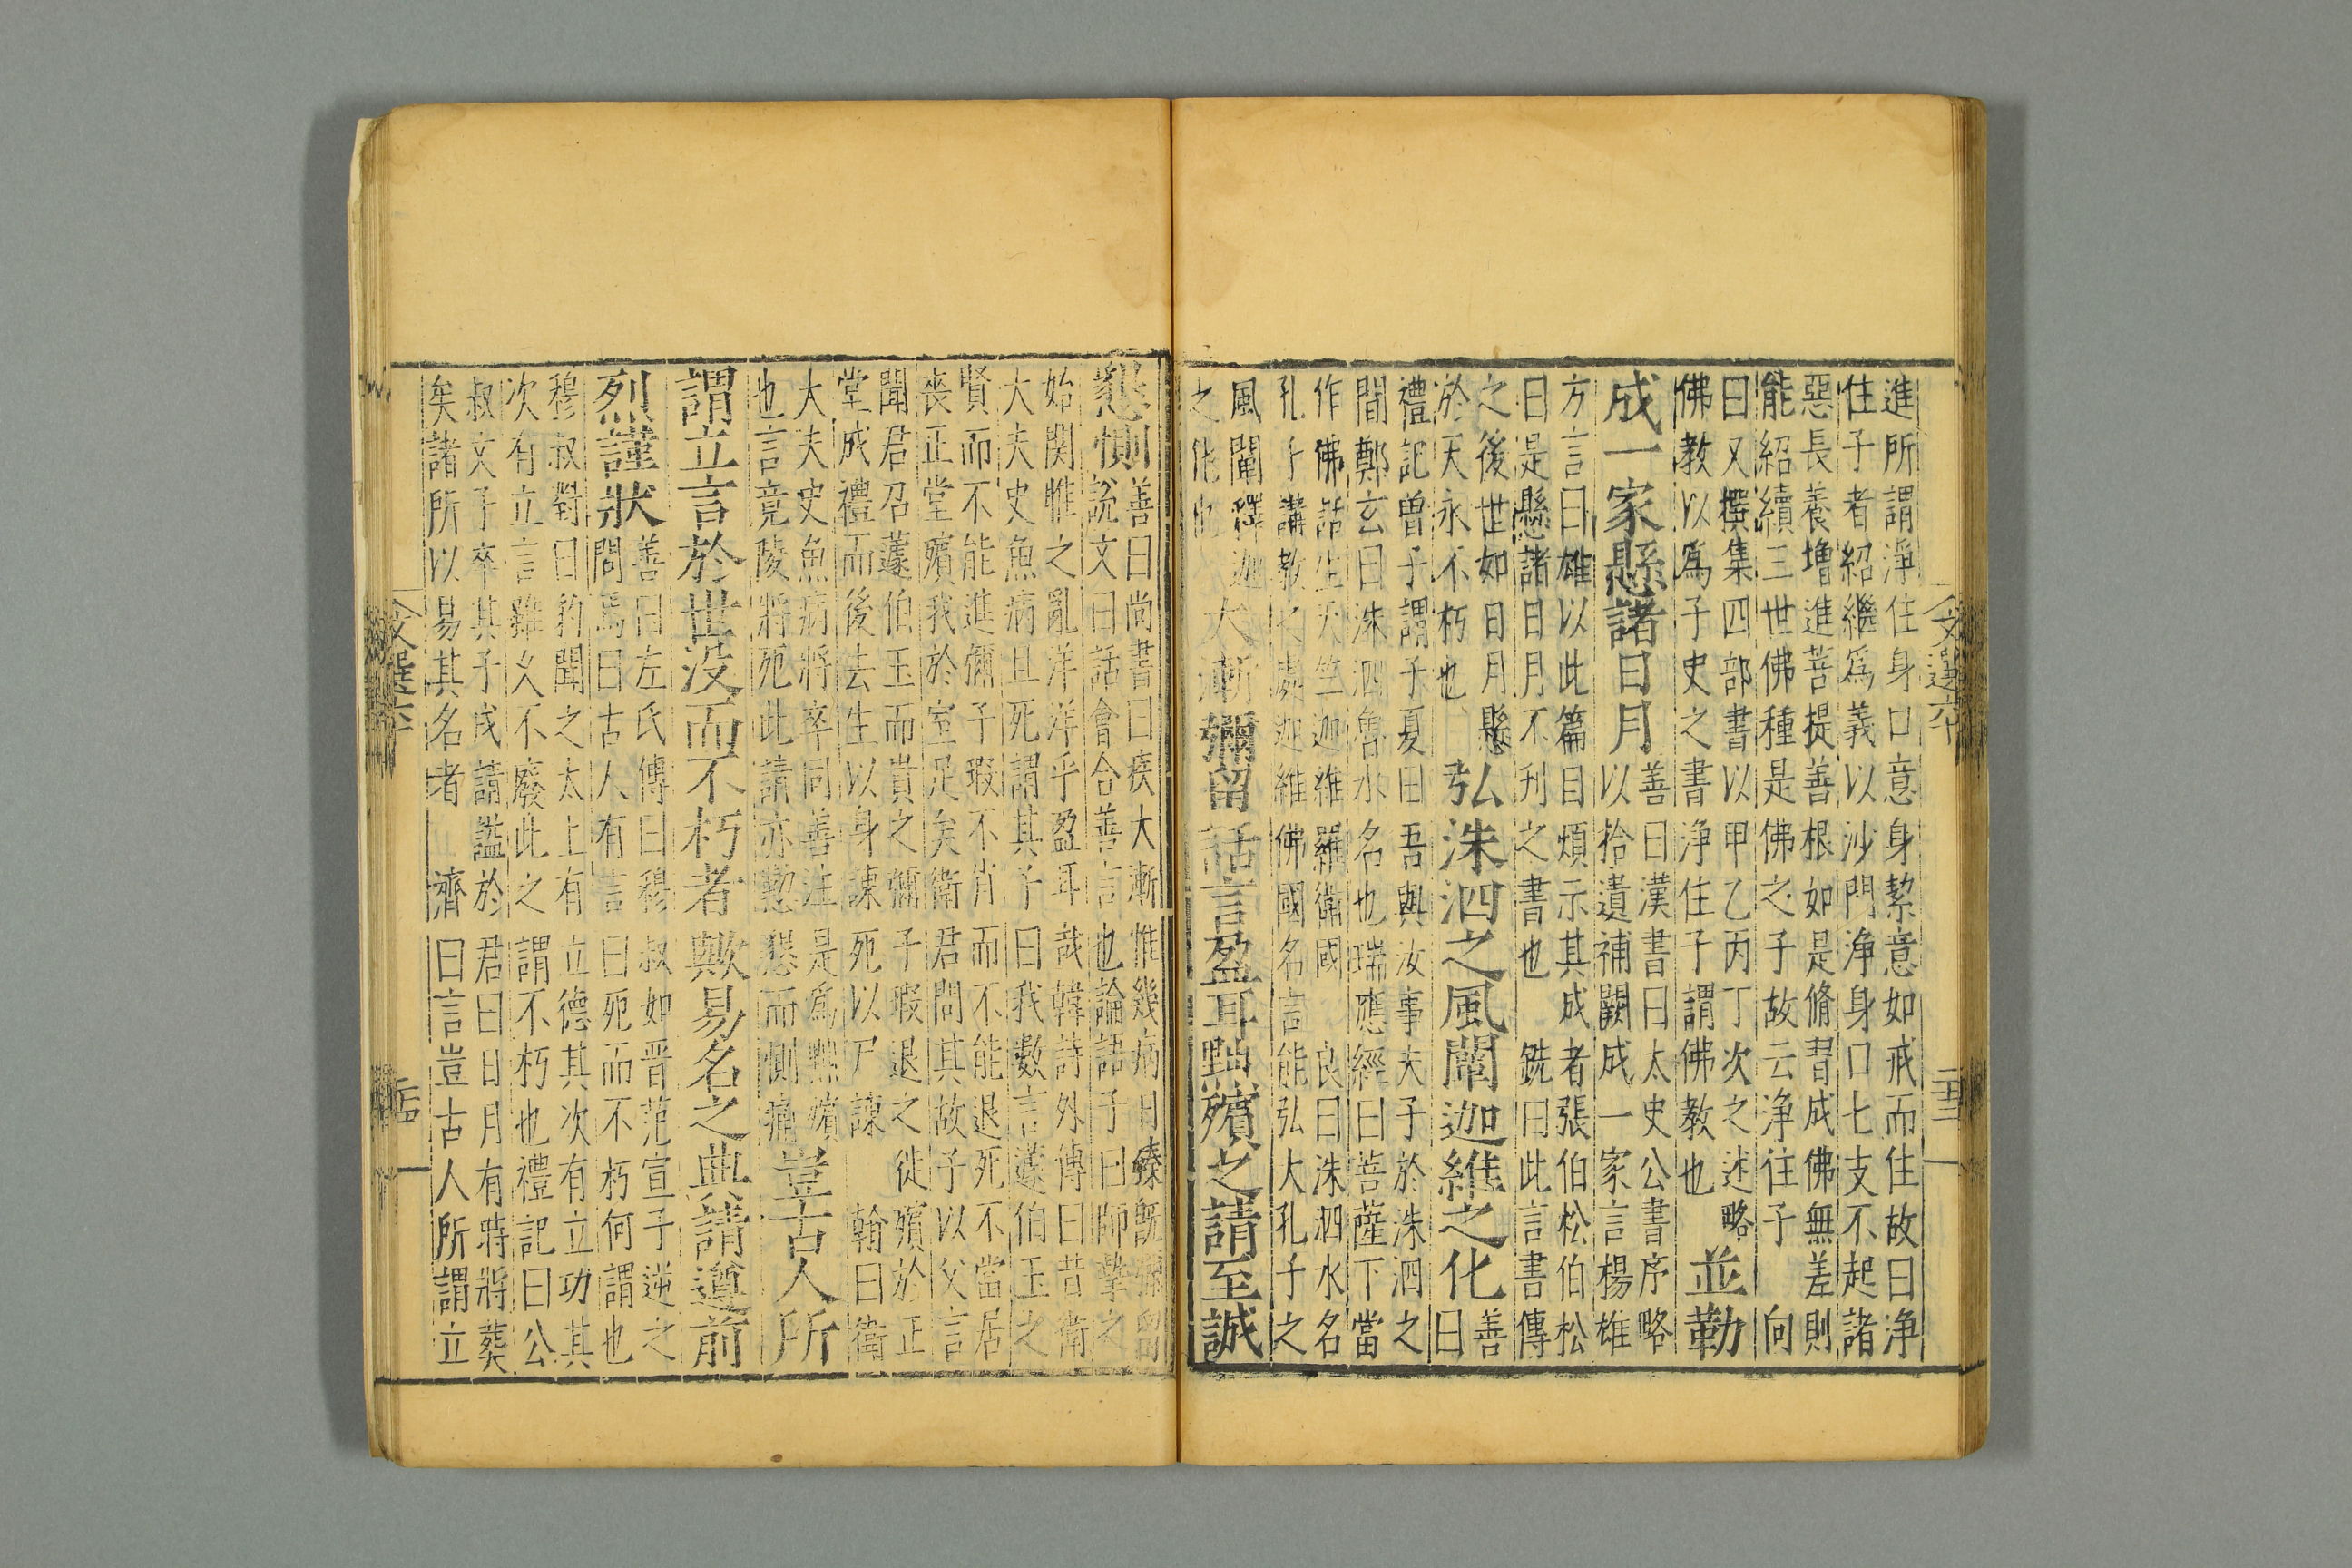 進所謂淨住身口意身絜意如戒而住故曰淨
住子者紹繼爲義以沙門淨身口七支不起諸
惡長養增進菩提善根如是脩習成佛無差則
能紹續三世佛種是佛之子故云淨住子 向
曰又撰集四部書以甲乙丙丁次之述略
佛教以爲子史之書淨住子謂佛教也
並勒
成一家懸諸日月
善曰漢書曰太史公書序略
以拾遺補闕成一家言楊雄
方言曰雄以此篇目煩示其成者張伯松伯松
曰是懸諸日月不刊之書也 銑曰此言書傳
之後世如日月懸
於天永不朽也
弘洙泗之風闡迦維之化
善
曰
禮記曾子謂子夏曰吾與汝事夫子於洙泗之
間鄭玄曰洙泗魯水名也瑞應經曰菩薩下當
作佛話生天竺迦維羅衞國 良曰洙泗水名
孔子講教之處迦維佛國名言能弘大孔子之
風闡釋迦
之化也
大漸彌留話言盈耳黜殯之請至誠
懇惻
善曰尚書曰疾大漸惟幾病日臻旣彌留
說文曰話會合善言也論語子曰師摯之
始関雎之亂洋洋乎盈耳哉韓詩外傳曰昔衛
大夫史魚病且死謂其子曰我數言蘧伯玉之
賢而不能進彌子瑕不肖而不能退死不當居
喪正堂殯我於室足矣衛君問其故子以父言
聞君召蘧伯玉而貴之彌子瑕退之徙殯於正
堂成禮而後去生以身諫死以尸諫 翰曰衛
大夫史魚病將卒同善注是爲黜殯
也言竟陵將死此請亦懃懇而惻痛
豈古人所
謂立言於世没而不朽者歟易名之典請遵前
烈謹狀
善曰左氏傳曰穆叔如晋范宣子逆之
問焉曰古人有言曰死而不朽何謂也
穆叔對曰豹聞之太上有立德其次有立功其
次有立言雖乆不廢此之謂不朽也禮記曰公
叔文子卒其子戍請謚於君曰日月有時將葬
矣請所以易其名者 濟曰言豈古人所謂立
文選六十
二十三
文選六十